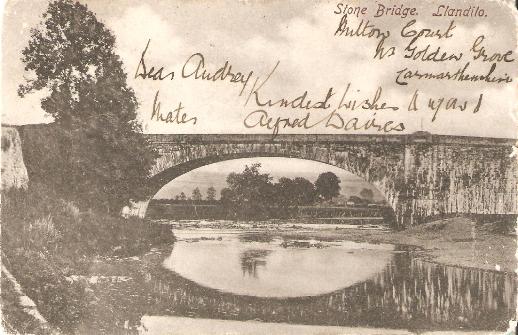 Stone Bridge. Llandilo.
Court
Nr Golden Grove
Carmarthenshire
Dear Audrey
Kindest wishes
Mater
Alfred Davies